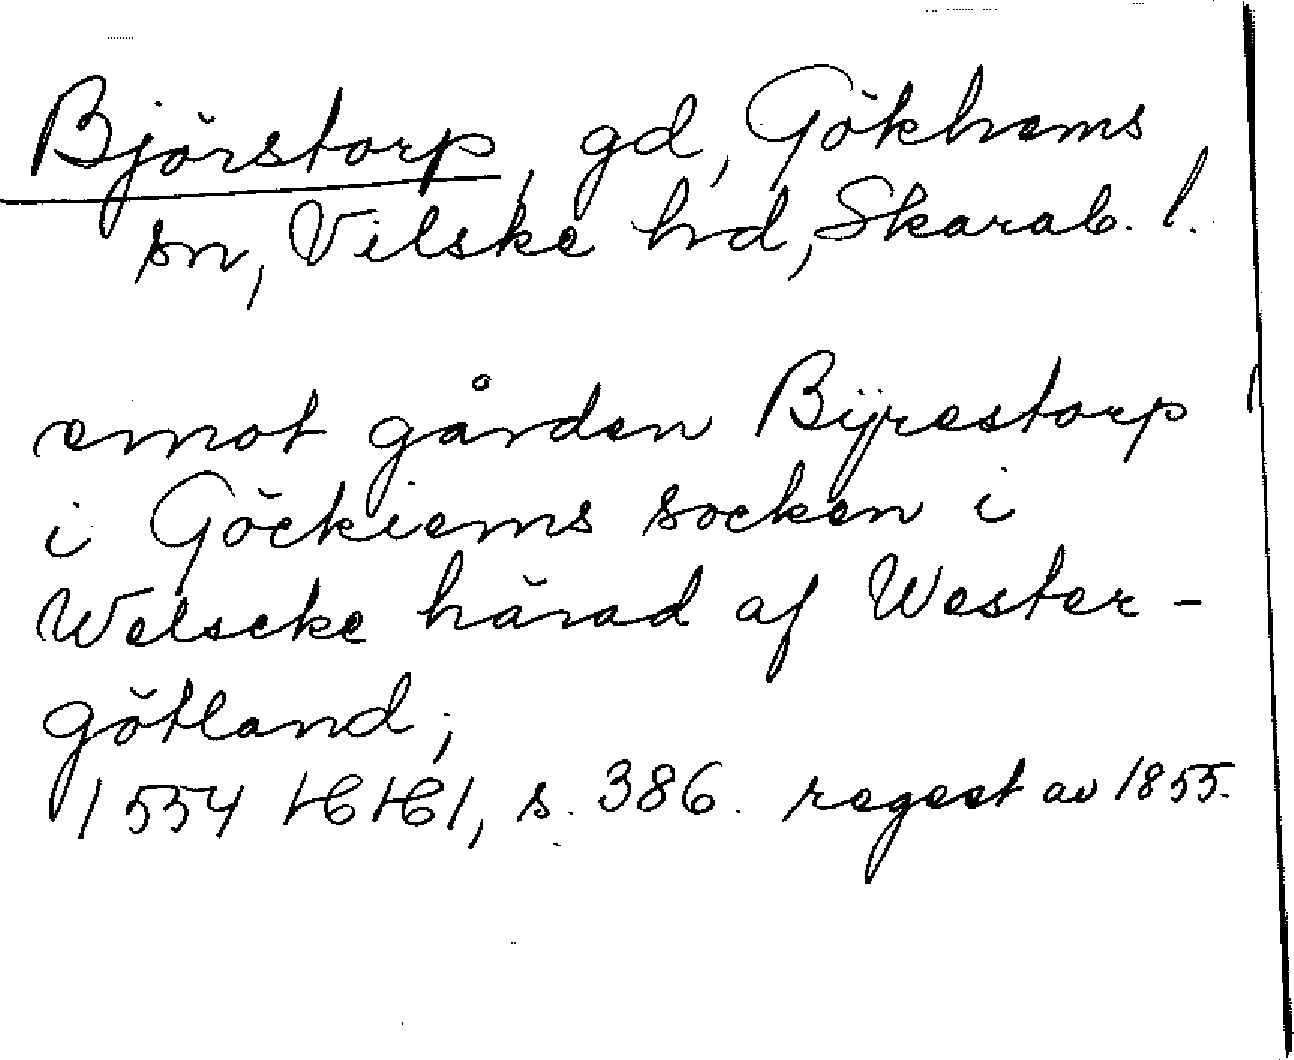 Björstorp, gd, Gökhems
sn, Vilske hd, Skarab. l.
emot gården Bÿrestorp
i Göckiems socken i
Welscke härad af Wester-
götland,
1554 HCHC1, s. 386. regest av 1855.